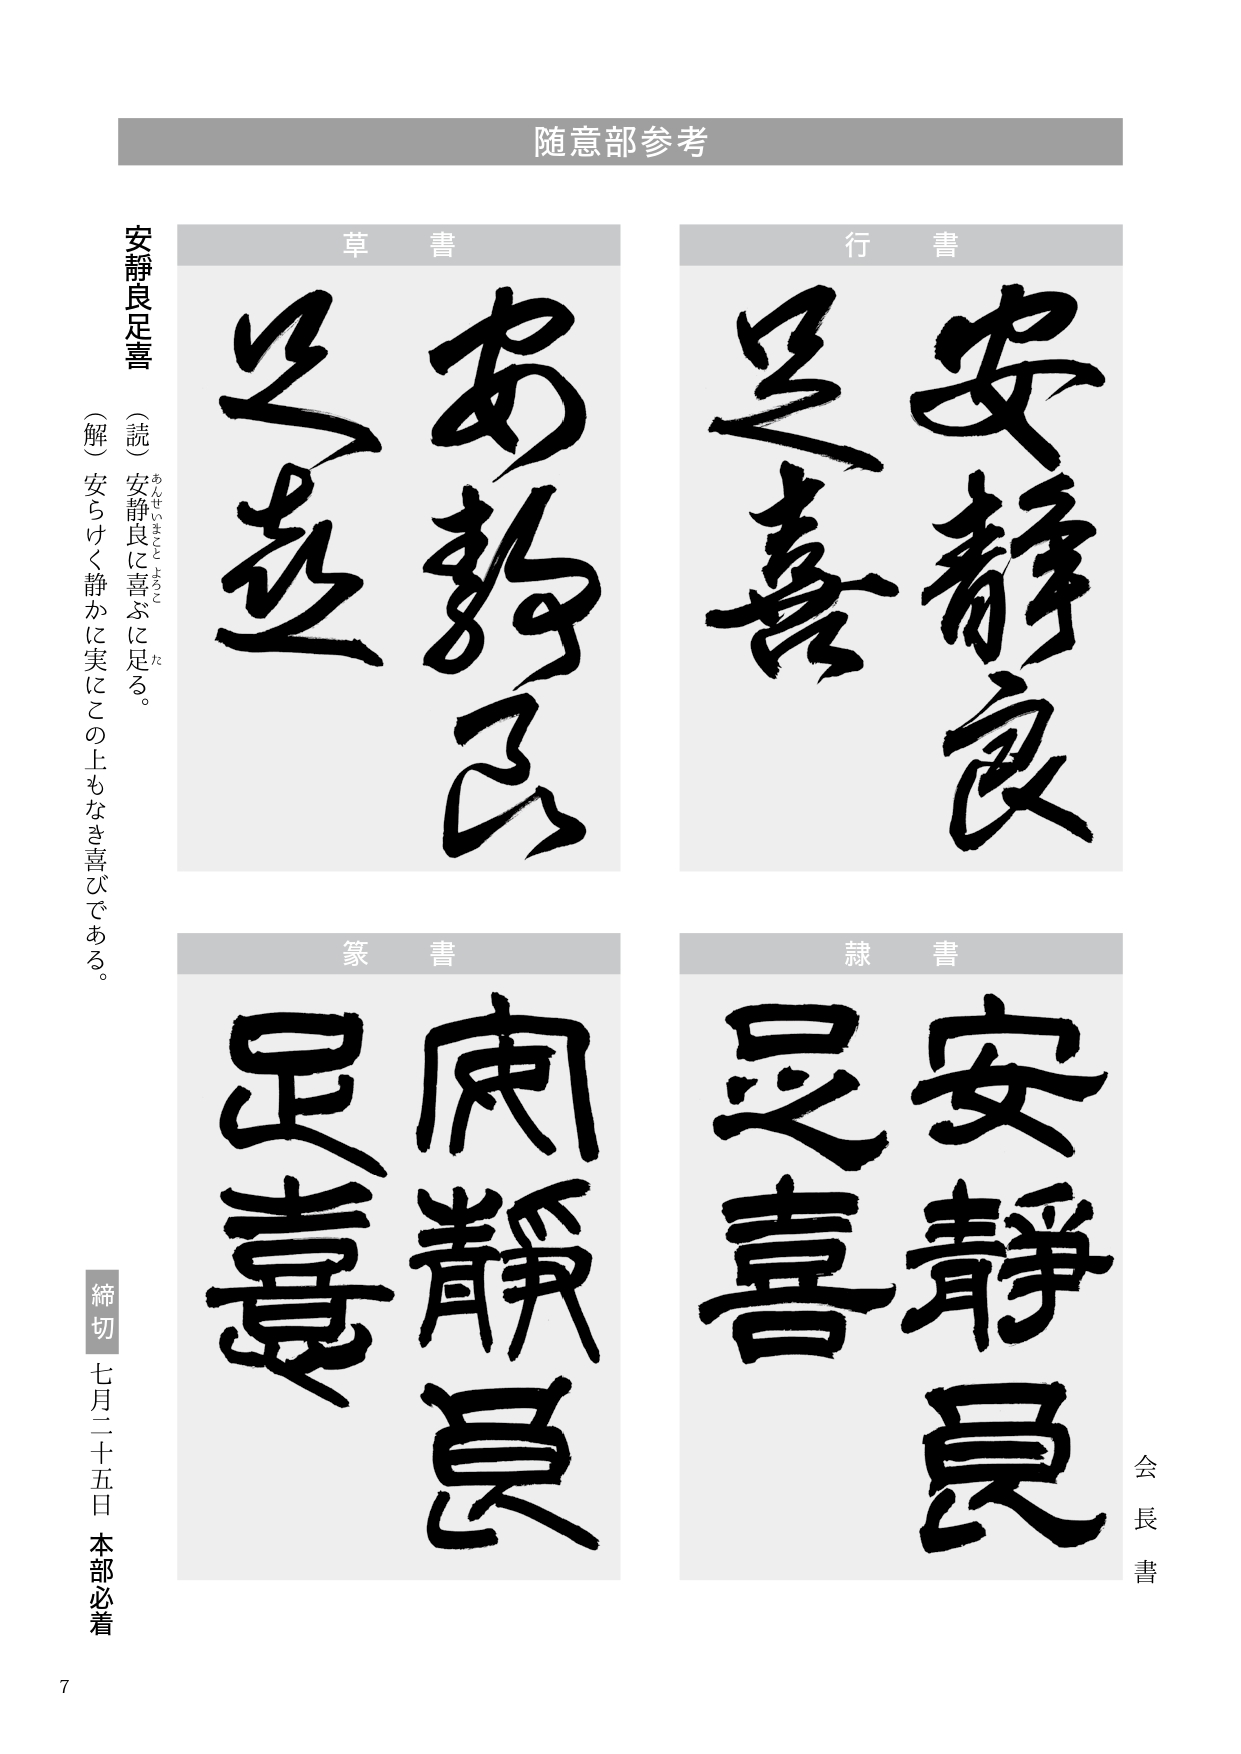 随意部参考
行書
安靜良
足喜
草書
安靜良
足喜
隷書
安靜良
足喜
篆書
安靜良
足喜
会長書
安靜良足喜
（読）安静良に喜ぶに足る。
あんせいまことよろこた
（解）安らけく静かに実にこの上もなき喜びである。
締切 七月二十五日 本部必着
7